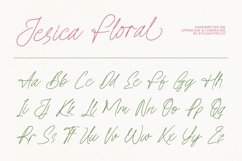 Jesica Floral
HANDWRITTEN INK
UPPERCASE & LOWERCASE
Aa Bb Cc Dd Ee Ff Gg Hh
Ii Jj Kk Ll Mm Nn Oo Pp Qq
Rr Ss Tt Uu Vv Ww Xx Yy Zz